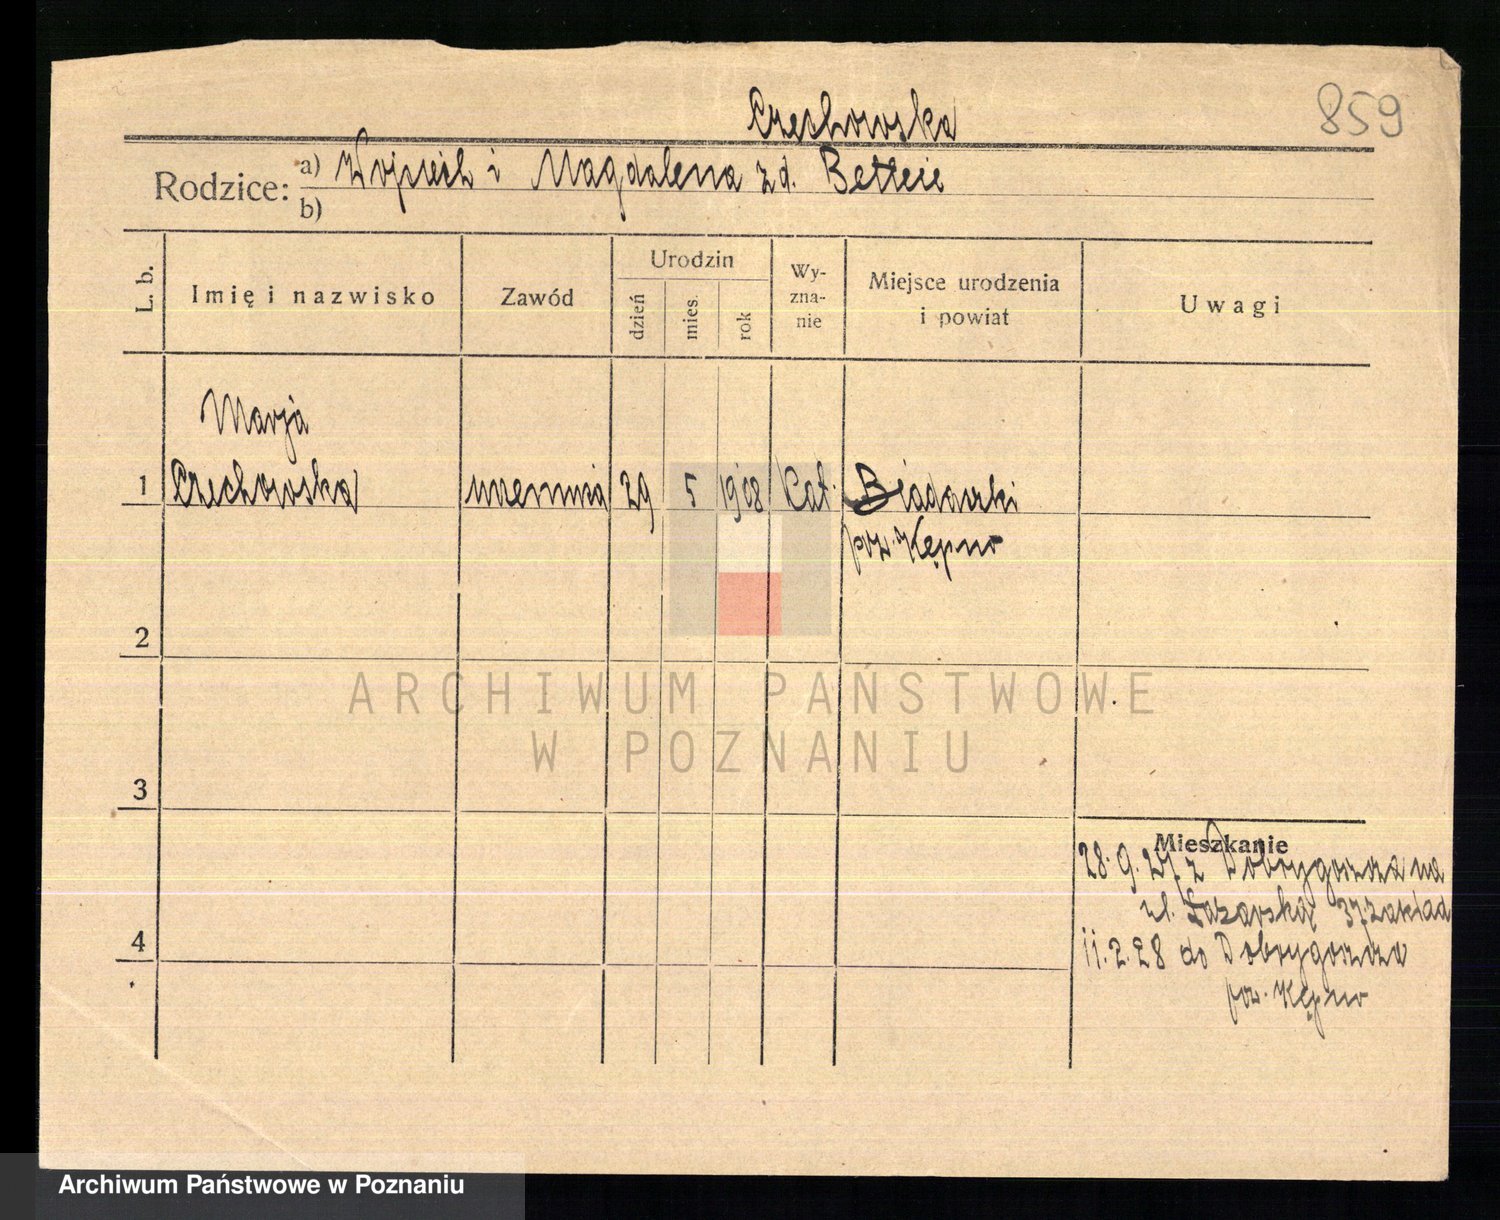 859
Czechowska
Rodzice: a) Wojciech i Magdalena zd.
b)
L. b.
Imię i nazwisko
Zawód
Urodzin
dzień
mies.
rok
Wy-
zna-
nie
Miejsce urodzenia
i powiat
Uwagi
Marja
1 Czechowska uczennica 29 5 1908 Kat. Biadaszki
pow. Kępno
2
3
4
Mieszkanie
28.9.27 z Dobrygoszcza na
ul. Łazarską 37 zakład
11.2.28 do Dobrygoszcza
pow. Kępno
ARCHIWUM PAŃSTWOWE
W POZNANIU
Archiwum Państwowe w Poznaniu